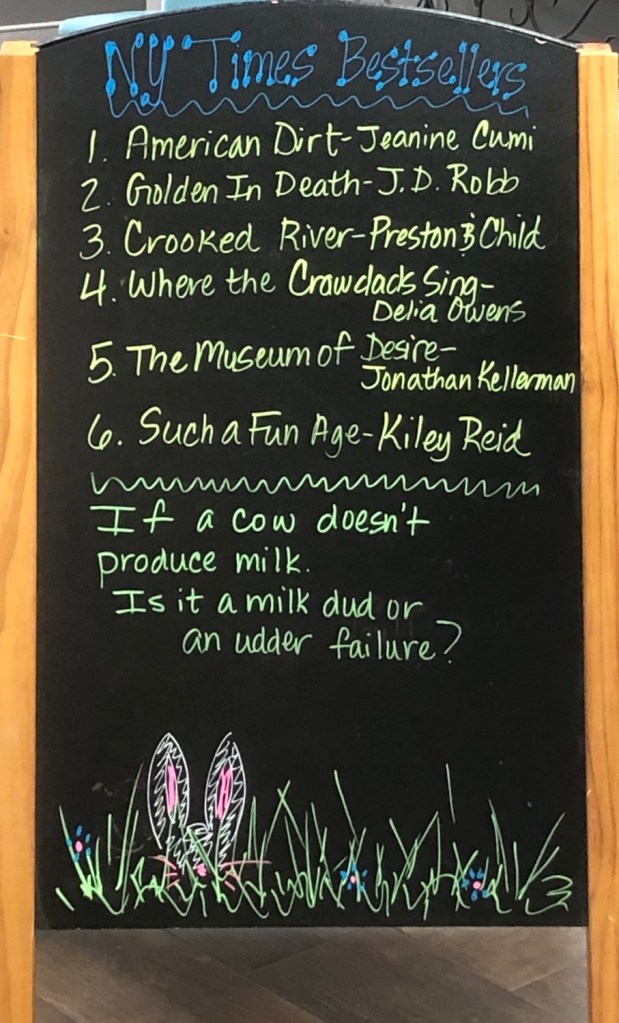 NY Times Bestsellers
1. American Dirt-Jeanine Cumi
2. Golden In Death-J.D. Robb
3. Crooked River-Preston & Child
4. Where the Crawdads Sing-
Delia Owens
5. The Museum of Desire-
Jonathan Kellerman
6. Such a Fun Age-Kiley Reid
If a cow doesn't
produce milk.
Is it a milk dud or
an udder failure?